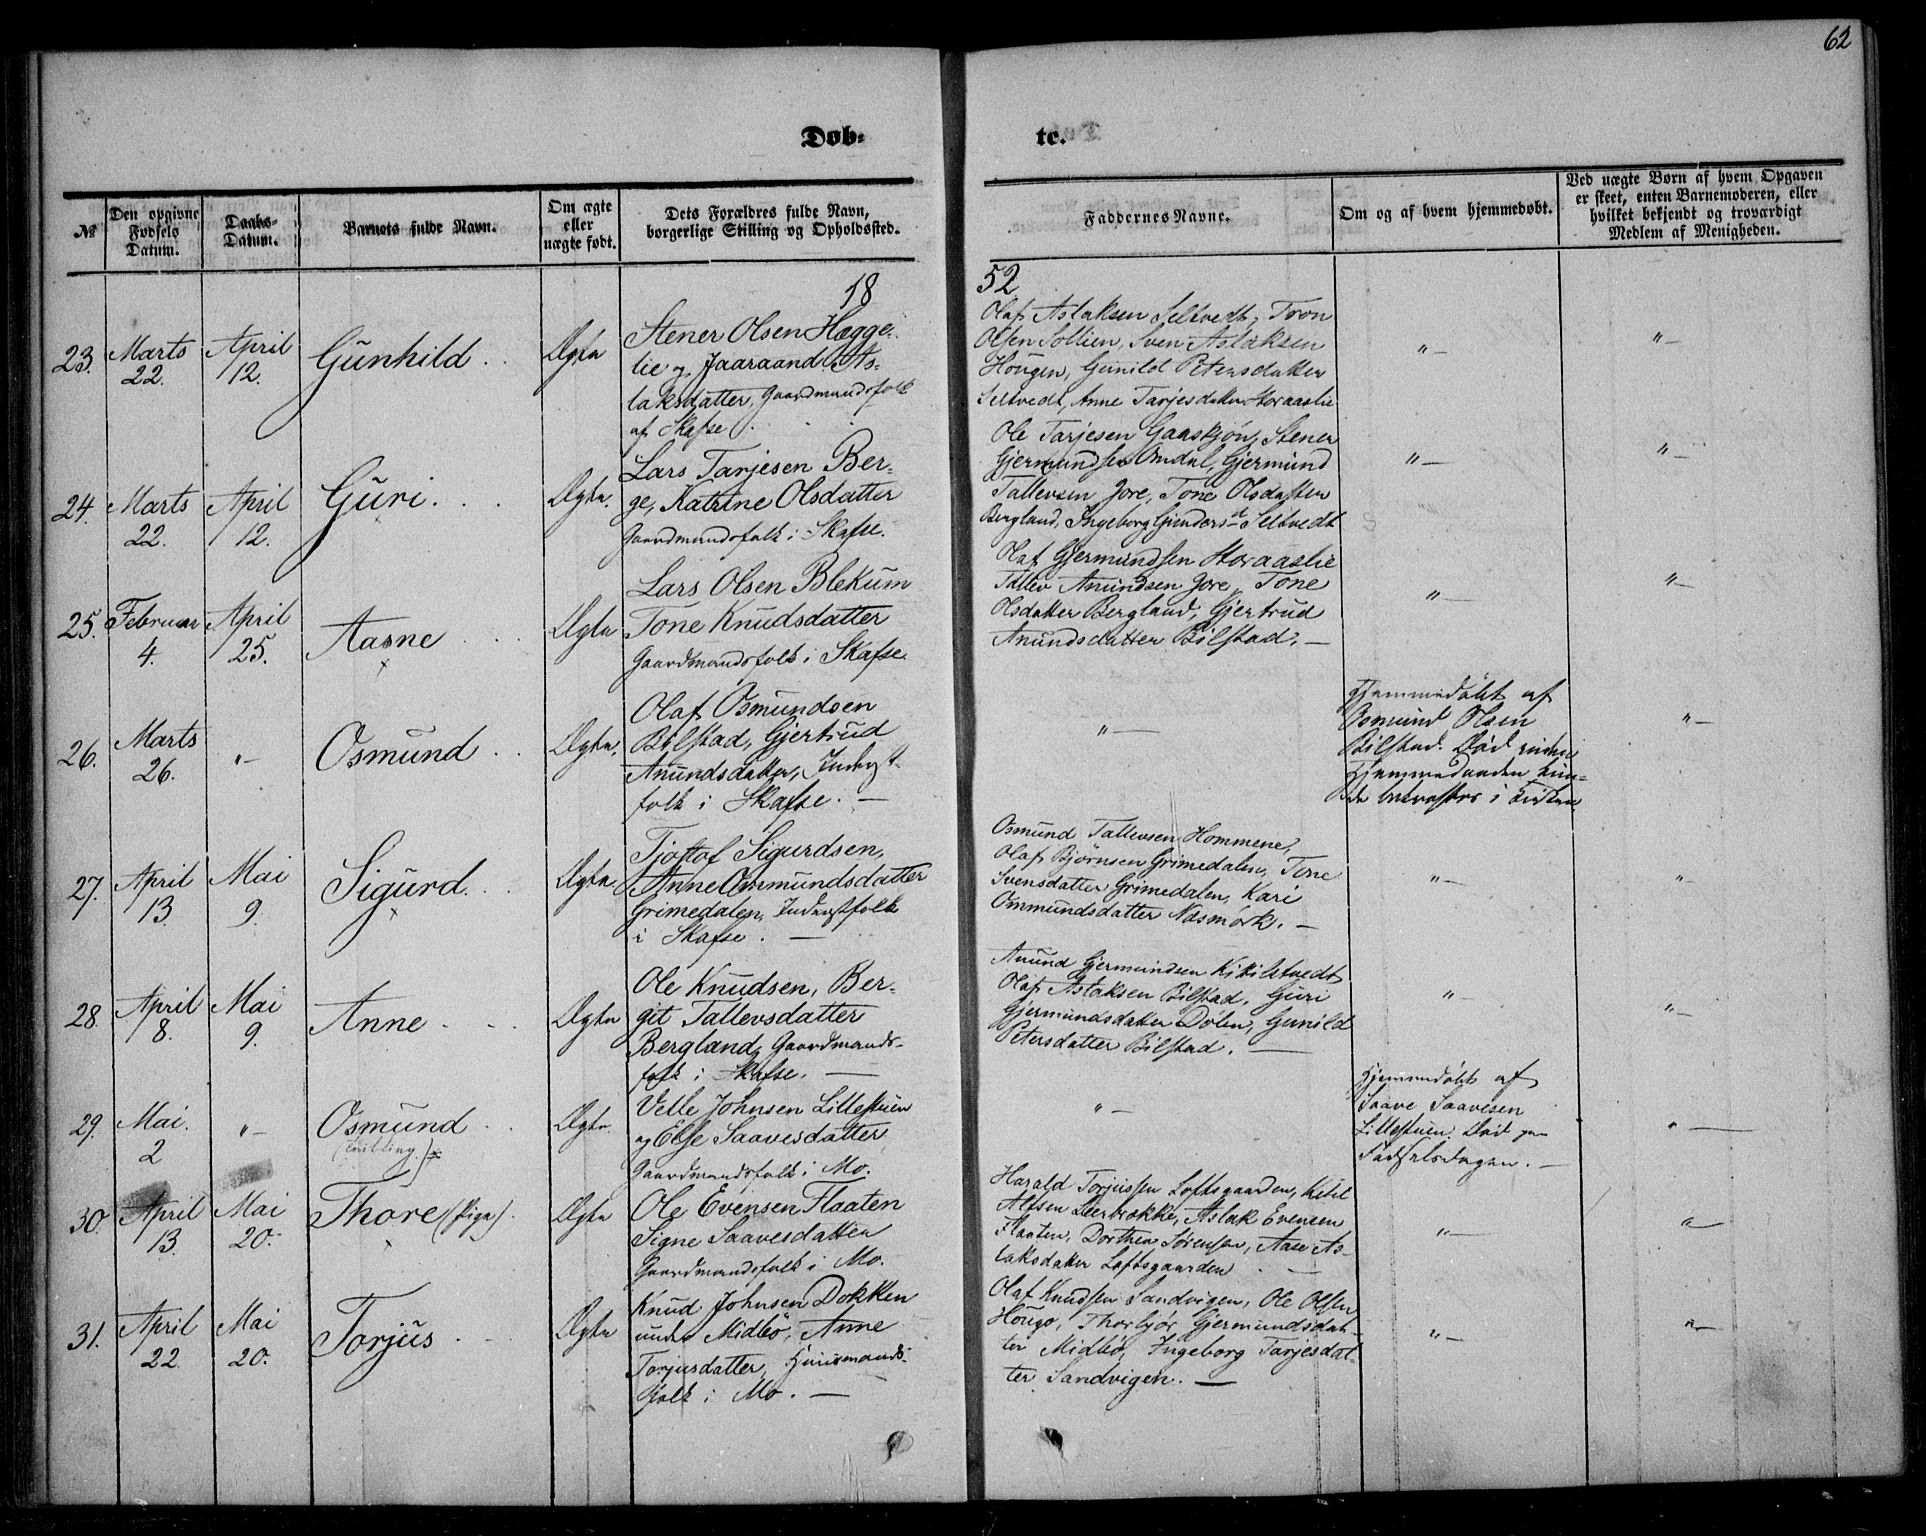 62
Døb-
te.
№
Den opgivne
Fødsels
Datum.
Daabs-
Datum.
Barnets fulde Navn.
Om ægte
eller
uægte født.
Dets Forældres fulde Navn,
borgerlige Stilling og Opholdssted.
Faddernes Navne.
Om og af hvem hjemmedøbt.
Ved uægte Børn af hvem Opgaven
er skeet, enten Barnemoderen, eller
hvilket bekjendt og troværdigt
Medlem af Menigheden.
18
52
23.
Marts
22.
April
12.
Gunhild
Ægte
Stener Olsen Hægge-
lie og Jaaraand As-
laksdatter, Gaardmandsfolk
af Skafse.
Olaf Aslaksen Seltvedt, Tron
Olsen Sollien, Sven Aslaksen
Hougen, Gunild Petersdatter
Seltvedt, Anne Tarjesdatter Storaaslie
"—
"—
24.
Marts
22.
April
12.
Guri.
Ægte.
Lars Tarjesen Ber-
ge, Katrine Olsdatter
Gaardmandsfolk i Skafse.
Ole Tarjesen Gaaskjøn, Stener
Gjermundsen Omdal, Gjermund
Tallevsen Jore, Tone Olsdatter
Bergland, Ingeborg Gundersd Seltvedt
"—
"—
25.
Februar
4.
April
25.
Aasne
Ægte
Lars Olsen Blekum
Tone Knudsdatter
Gaardmandsfolk i Skafse.
Olaf Gjermundsen Storaaslie
Tallev Anundsen Jore, Tone
Olsdatter Bergland, Gjertrud
Anundsdatter Bilstad. —
"—
"—
26.
Marts
26.
"—
Osmund
Ægte.
Olaf Osmundsen
Bilstad, Gjertrud
Anundsdatter, Inderst-
folk i Skafse. —
"—
Hjemmedøbt af
Osmund Olsen
Bilstad. Død inden
Hjemmedaaben kun-
de bekræftes i Kirken
"—
27.
April
13.
Mai
9.
Sigurd.
Ægte.
Tjostof Sigurdsen,
Anne Ommundsdatter
Grimedalen, Inderstfolk
i Skafse. —
Osmund Tallevsen Hommene,
Olaf Bjørnsen Grimedalen, Tone
Svensdatter Grimedalen, Kari
Ommundsdatter Næsmørk. —
"—
"—
28.
April
8.
Mai
9.
Anne
Ægte
Ole Knudsen, Ber-
git Tallevsdatter
Bergland, Gaardmands-
folk i Skafse. —
Anund Gjermundsen Kikiltvedt
Olaf Aslaksen Bilstad, Guri
Gjermundsdatter Dølen, Gunild
Petersdatter Bilstad. —
"—
"—
29.
Mai.
2
"—
Osmund
(Tvilling.)
Ægte.
Vetle Johnsen Lillestuen
og Else Saavesdatter
Gaardmandsfolk i Mo.
"—
Hjemmedøbt af
Saave Saavesen
Lillestuen. Død paa
Fødselsdagen. —
"—
30.
April
13.
Mai
20.
Thore (Pige).
Ægte
Ole Evensen Flaaten
Signe Saavesdatter
Gaardmandsfolk i Mo.
Harald Torjussen Loftsgaarden, Ketil
Alfsen Leerbrokke, Aslak Evensen
Flaaten, Dorthea Sørensen, Aase As-
laksdatter Loftsgaarden —
"—
"—
31.
April
22.
Mai
20.
Torjus
Ægte
Knud Johnsen Dokken
under Midbø, Anne
Torjusdatter, Huusmands-
folk i Mo. —
Olaf Knudsen Sandvigen, Ole Olsen
Hougo, Thorbjør Gjermundsdat-
ter Midbø, Ingeborg Tarjesdat-
ter Sandvigen. —
"—
"—